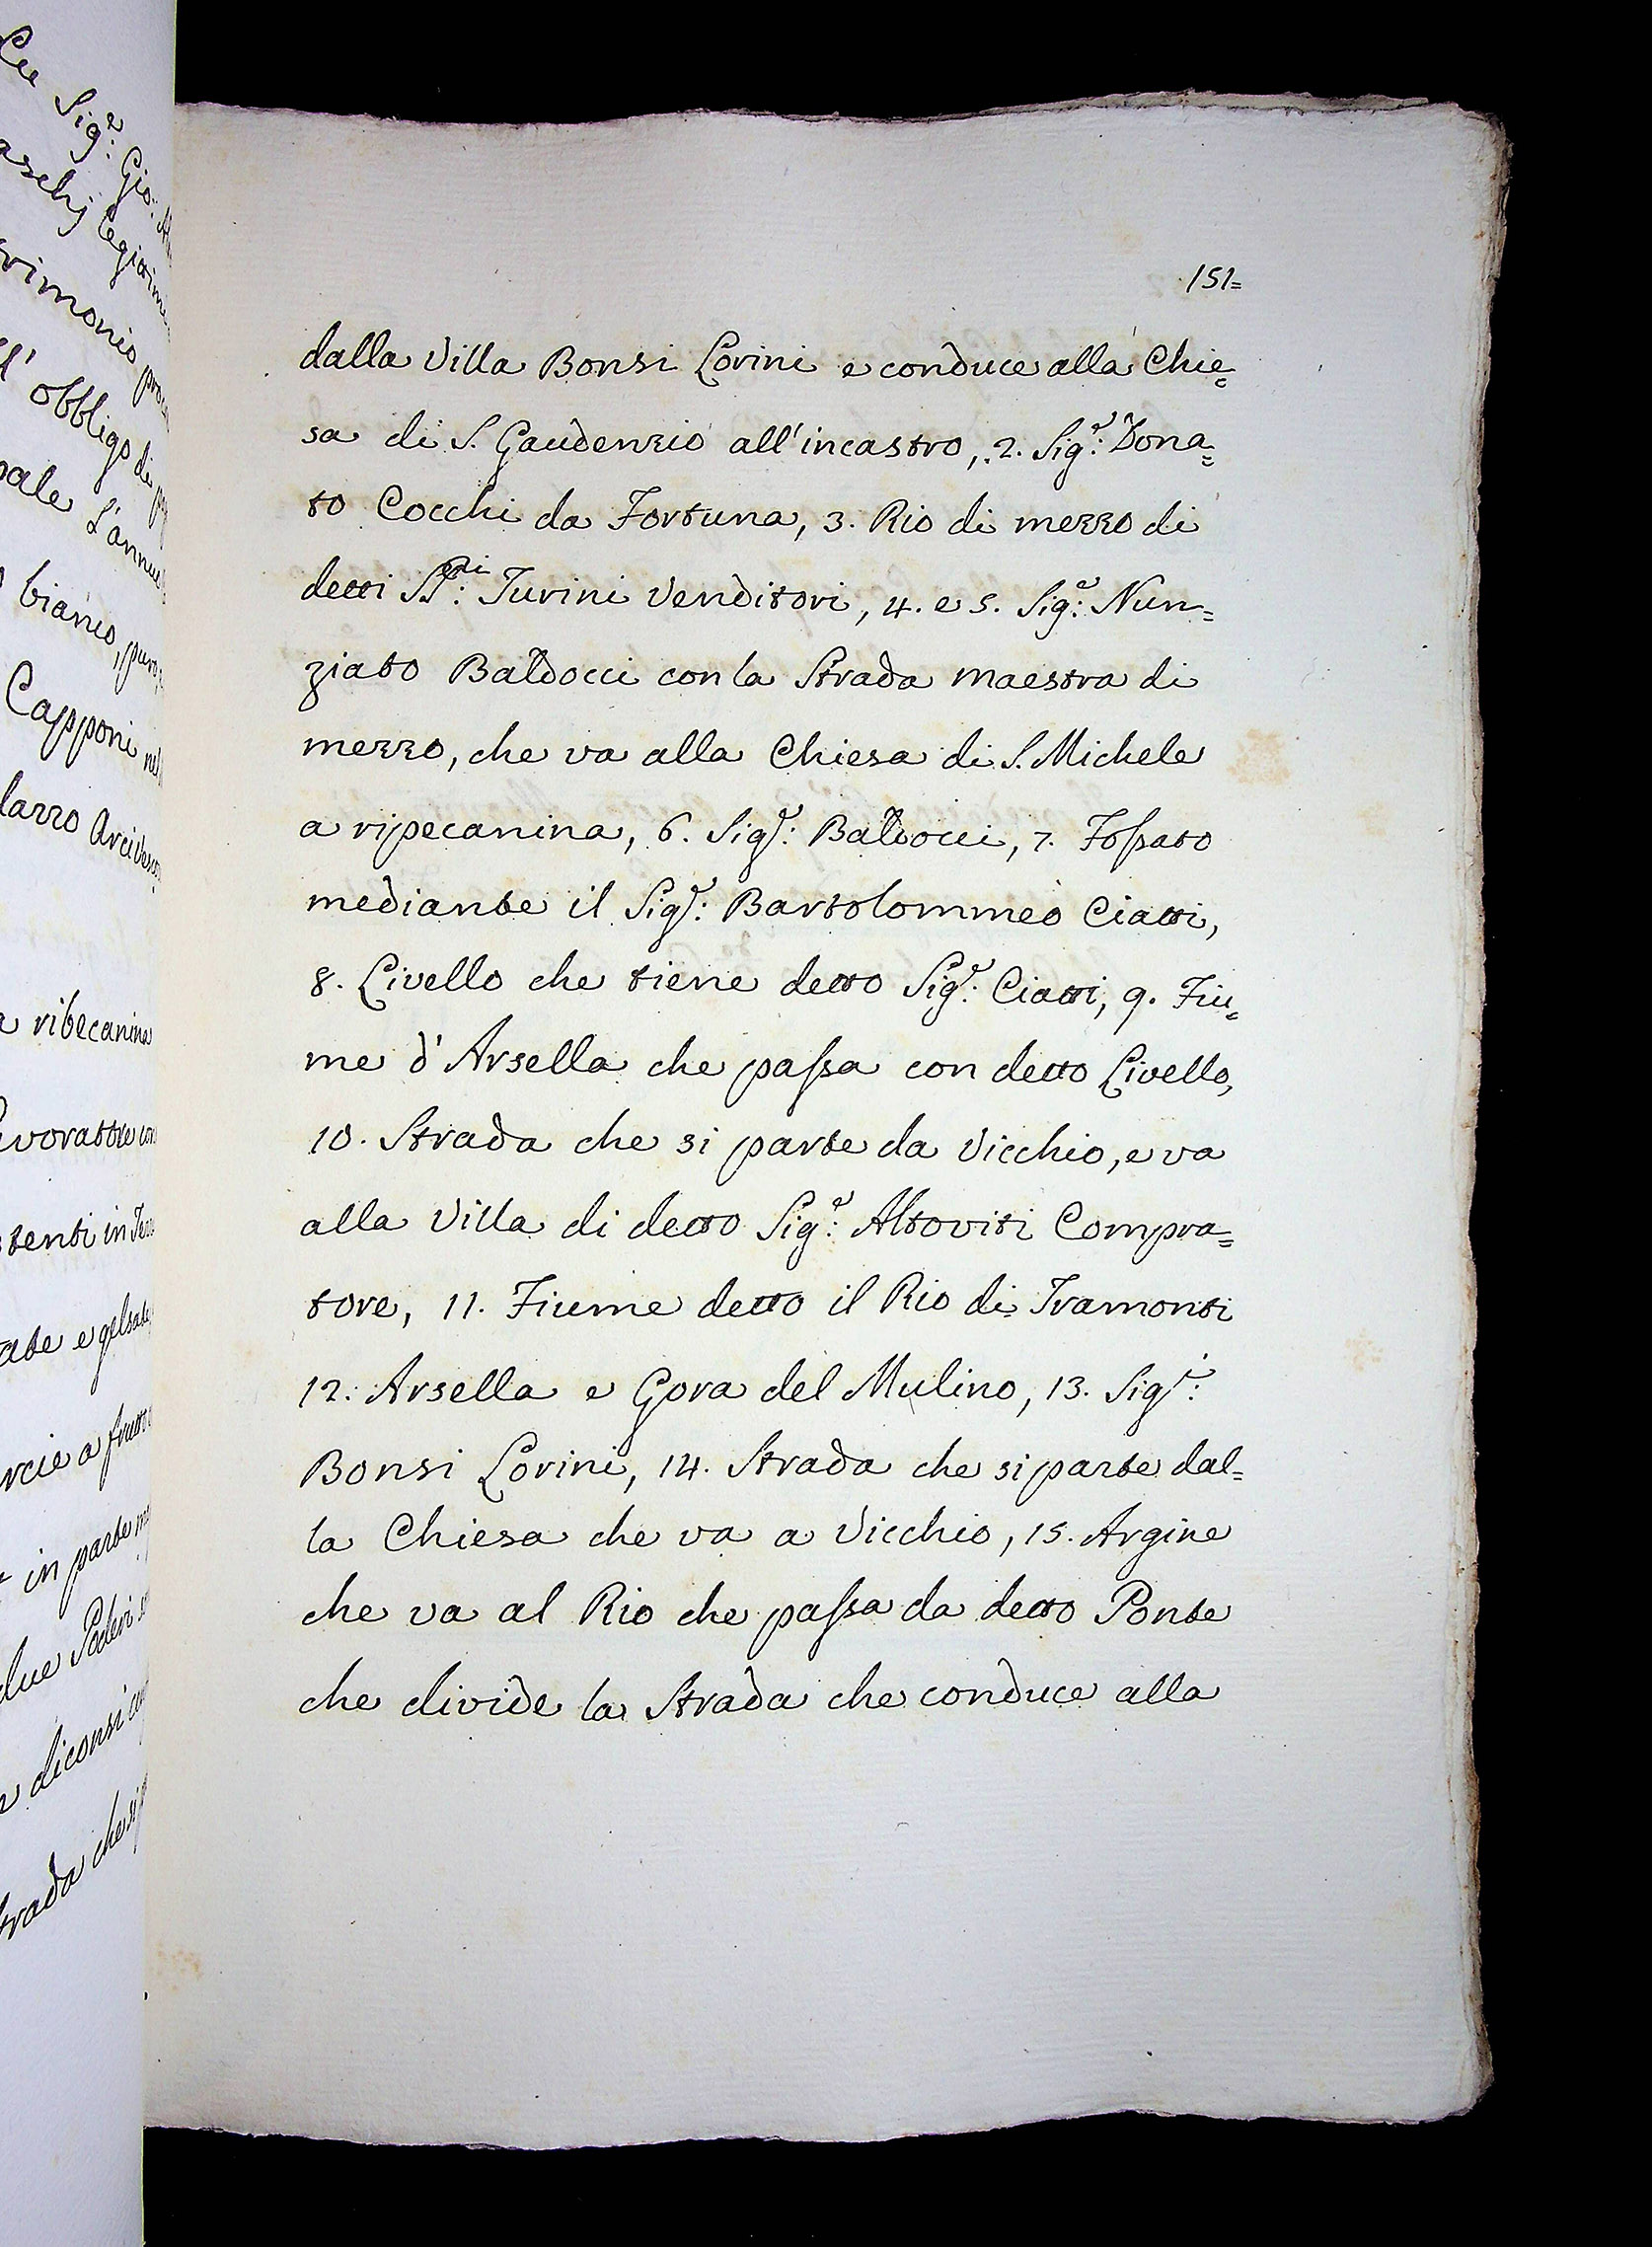 151=
dalla Villa Bonsi Lorini e conduce alla Chie=
sa di S. Gaudenzio all'incastro, 2. Sig.e: Dona=
to Cocchi da Fortuna, 3. Rio di mezzo di
detti SS.ri: Turini Venditori, 4. e 5. Sig.e: Nun=
ziato Baldocci con la Strada maestra di
mezzo, che va alla Chiesa di S. Michele
a ripecanina, 6. Sig.r: Baldocci, 7. Fossato
mediante il Sig.r: Bartolommeo Ciatti,
8. Livello che tiene detto Sig.r: Ciatti, 9. Fiu=
me d'Arsella che passa con detto Livello,
10. Strada che si parte da Vicchio, e va
alla Villa di detto Sig.e: Altoviti Compra=
tore, 11. Fiume detto il Rio di Tramonti
12. Arsella e Gora del Mulino, 13. Sig.ri:
Bonsi Lorini, 14. Strada che si parte dal=
la Chiesa che va a Vicchio, 15. Argine
che va al Rio che passa da detto Ponte
che divide la Strada che conduce alla
Sig.e: Gio:
obbligo di
bianco,
Capponi
a ribecanina
in parte
due Poderi
diconsi